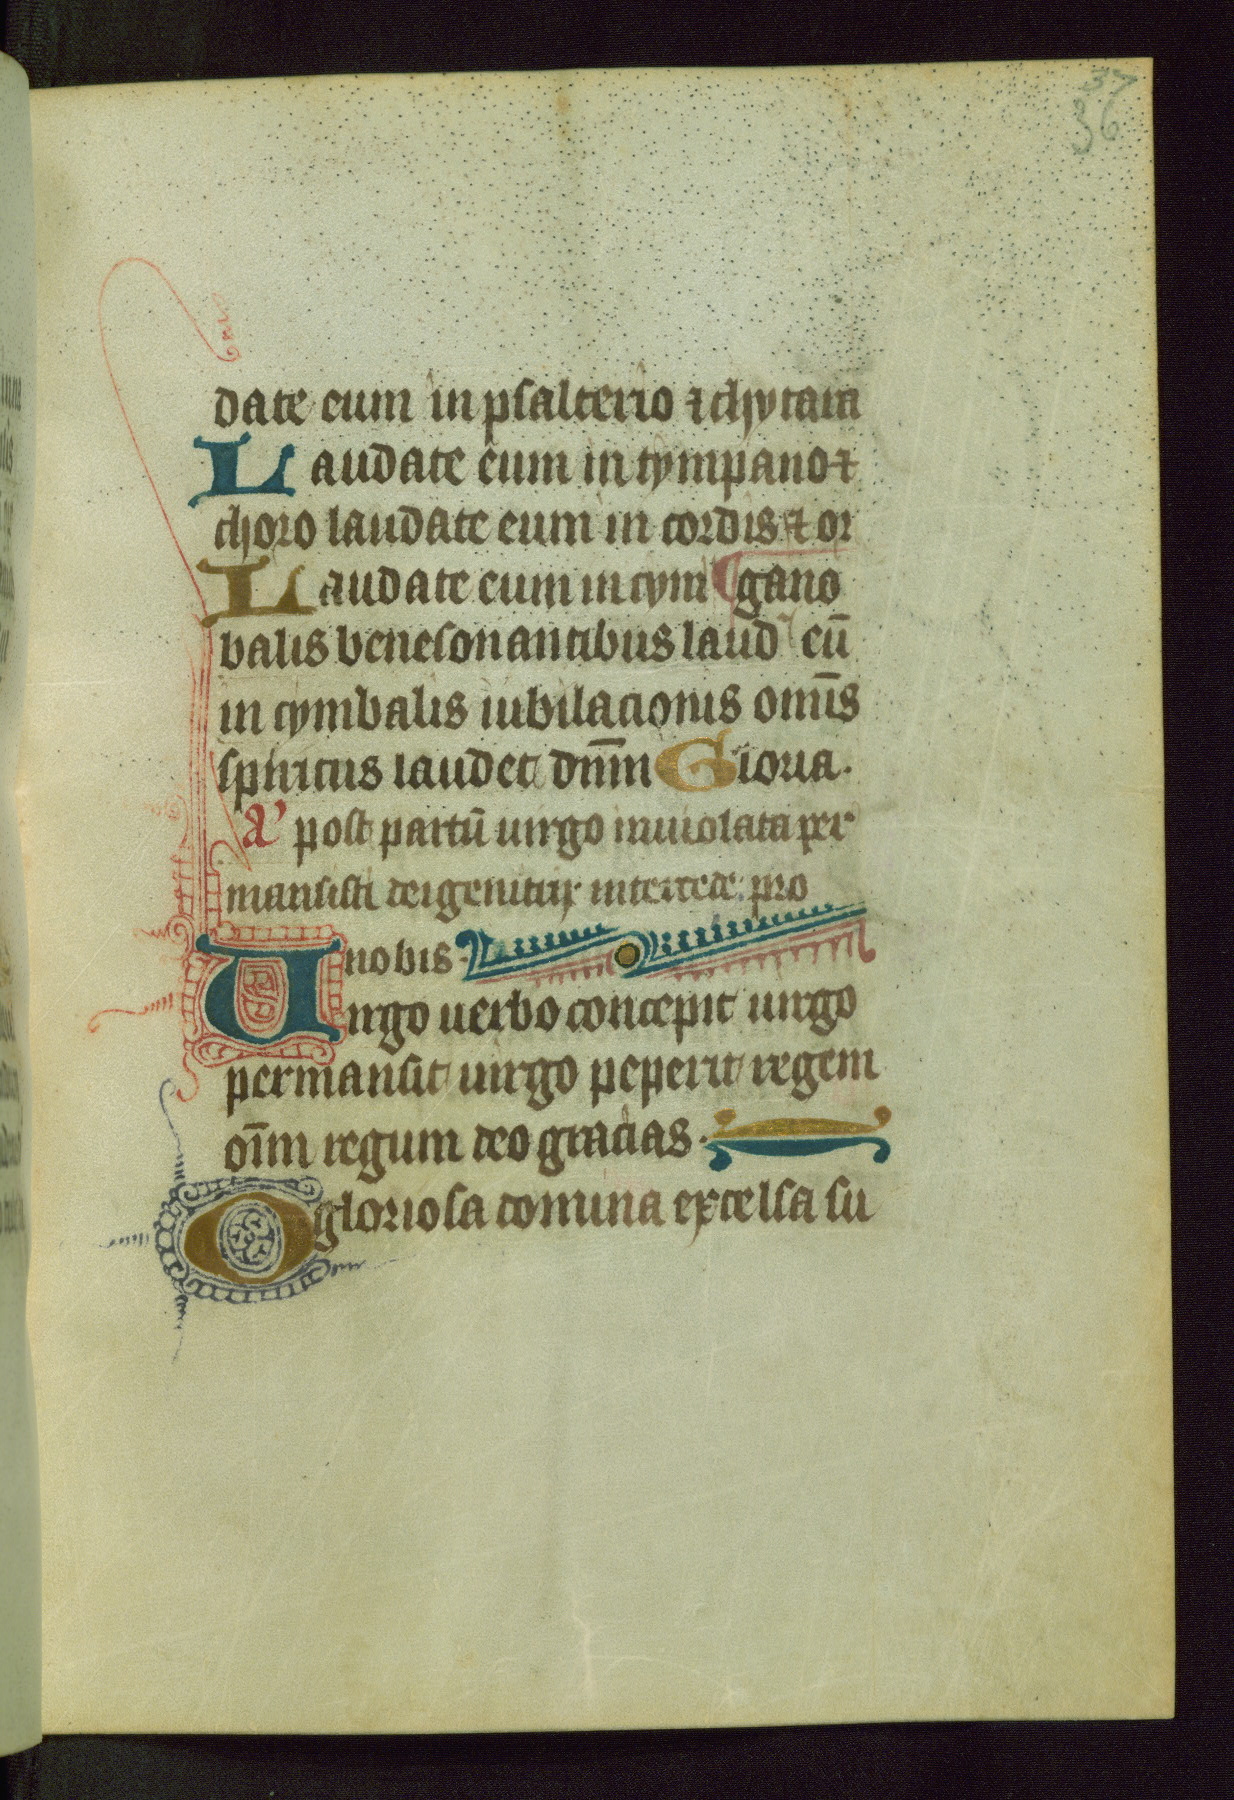 37
36
date eum in psalterio ⁊ chytara
Laudate eum in tympano ⁊
choro laudate eum in cordis ⁊ or
Laudate eum in cym ¶ gano
balis benesonantibus laud' eū
in cymbalis iubilacionis omīs
spiritus laudet dn̄m Gloria.
a' post partū uirgo inuiolata per
mansisti dei genitrix intercede pro
nobis
Uirgo uerbo concepit uirgo
permansit uirgo peperit regem
oīm regum deo gracias.
O gloriosa domina excelsa su